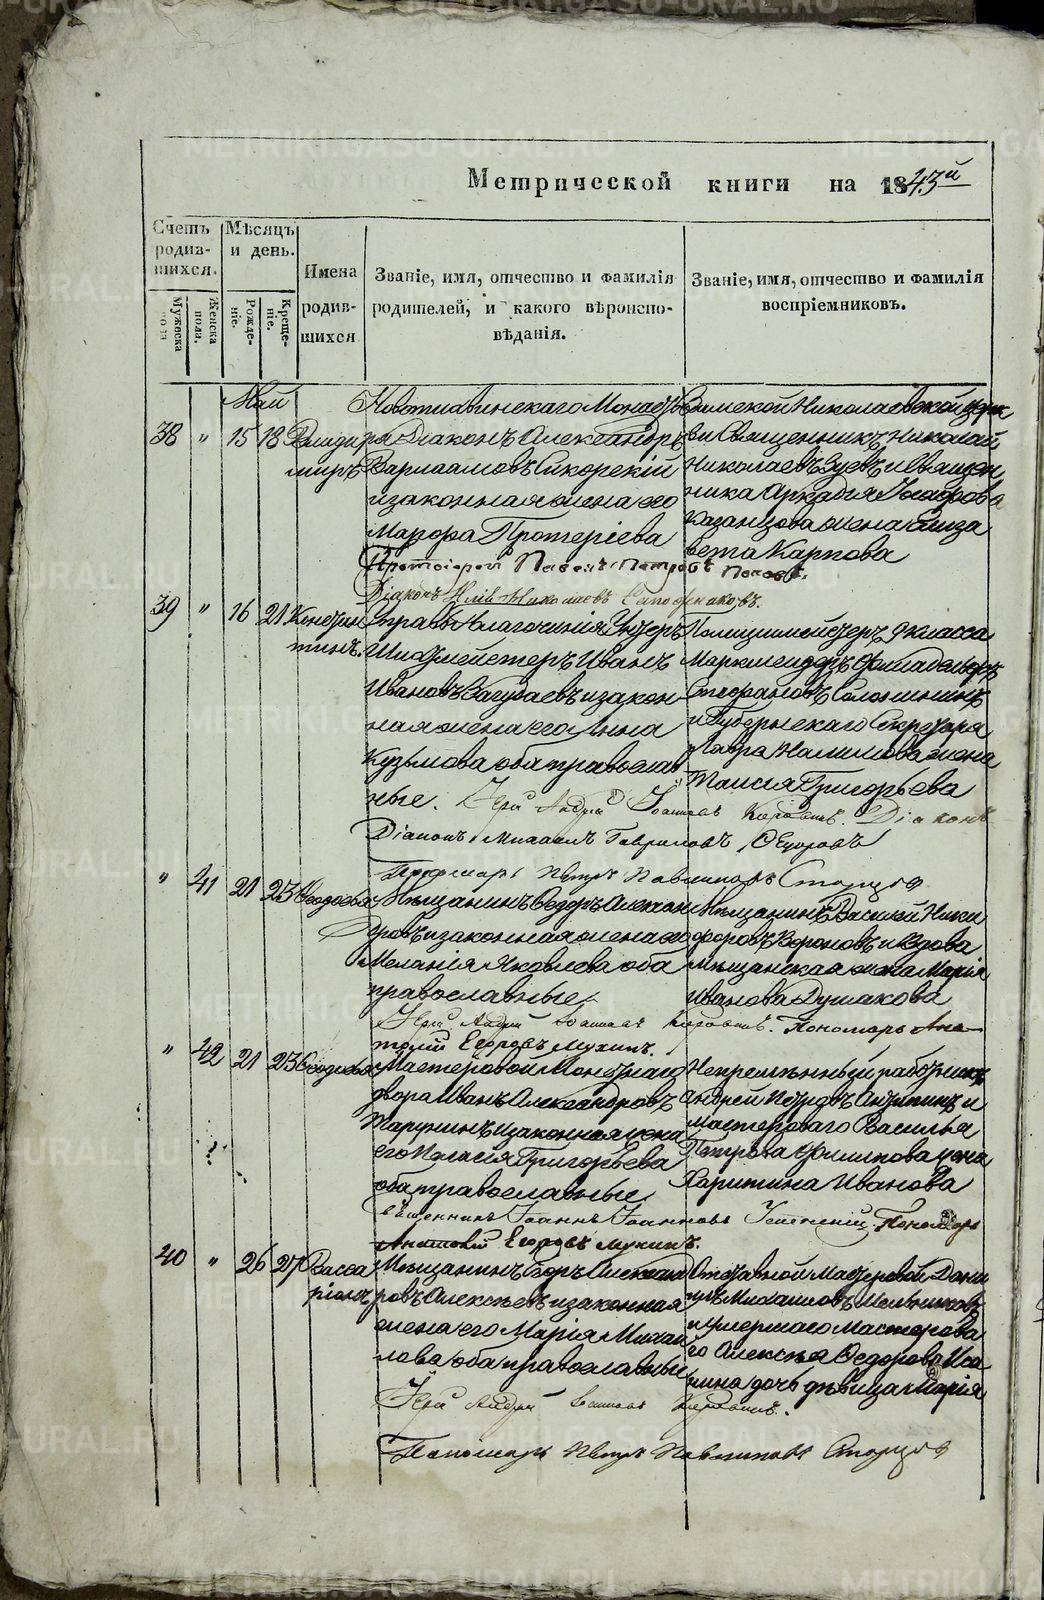 Метрической книги на 1843й
Счетъ родив-шихся.
Мужеска пола
Женска пола.
Мѣсяцъ и день.
Рожде-ніе.
Креще-ніе.
Имена
родив-
шихся
Званіе, имя, отчество и фамилія
родителей, и какого вѣроиспо-
вѣданія.
Званіе, имя, отчество и фамилія
воспріемниковъ.
Май
38 " 15 18 Влади
миръ
Новотихвинскаго Монасты
ря Діаконъ Александръ
Варлаамовъ Сикорскій
и законная жена его
Марфа Протеріева
Николаевской церк
ви Священникъ Николай
Николаевъ Зуевъ и Священ
ника Аркадія
Казанцова жена Елиза
вета Карпова
Протоіерей Павелъ Петровъ Поповъ.
Діаконъ Николаевъ Сапожниковъ.
39 " 16 21 Констан
тинъ.
Управы Благочинія Унтеръ
Шихтмейстеръ Иванъ
Ивановъ и закон
ная жена его Анна
Кузьмова оба православ
ные.
Полицмейстеръ 9 класса
Маркшейдеръ Филадельфъ
Стефановъ Соломинъ
и Губернскаго Секретаря
Лавра Налимова жена
Таисія Григорьева
Іерей Андрей Іоанновъ Діаконъ
Діаконъ Михаилъ Гавриловъ Ѳедоровъ
Пономарь Петръ Павлиновъ Старцовъ
" 41 21 23 Ѳеодосья
Мѣщанинъ Ѳедоръ Алексан
дровъ и законная жена его
Меланія Яковлева оба
православные
Мѣщанинъ Василій Ники
форовъ Вороновъ и Вдова
мѣщанская жена Марія
Иванова Душакова
Іерей Андрей Іоанновъ Пономарь Ана-
толій Егоровъ Мухинъ.
" 42 21 23 Ѳеодосья
Мастеровой Монетнаго
двора Иванъ Александровъ
Тарунинъ и законная жена
его Пелагія Григорьева
оба православные
Непремѣнный работникъ
Андрей Петровъ Антипинъ и
мастероваго Василья
Петрова Филипова жена
Харитина Иванова
Священникъ Іоаннъ Іоанновъ Успенскій. Пономарь
Анатолій Егоровъ Мухинъ.
40 " 26 27 Висса
ріонъ
Мѣщанинъ Егоръ Александ
ровъ Алексѣевъ и законная
жена его Марія Михай
лова оба православные
Отставной Мастеровой Дани
илъ Михаиловъ Мельниковъ
и умершаго Мастерова
го Алексѣя Ѳедорова Иса
кина дочь дѣвица Марія
Іерей Андрей Іоанновъ
Пономарь Петръ Павлиновъ Старцовъ